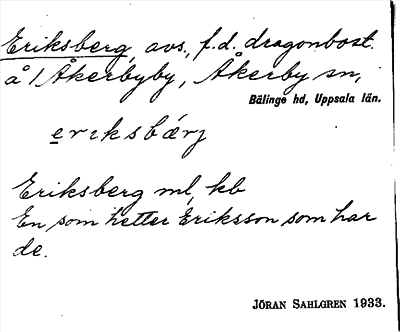 Eriksberg, avs., f.d. dragonbost.
å 1 Åkerbyby, Åkerby sn,
Bälinge hd, Uppsala län.
eriksbærj
Eriksberg ml, kb
En som hetter Eriksson som har
de.
JÖRAN SAHLGREN 1933.